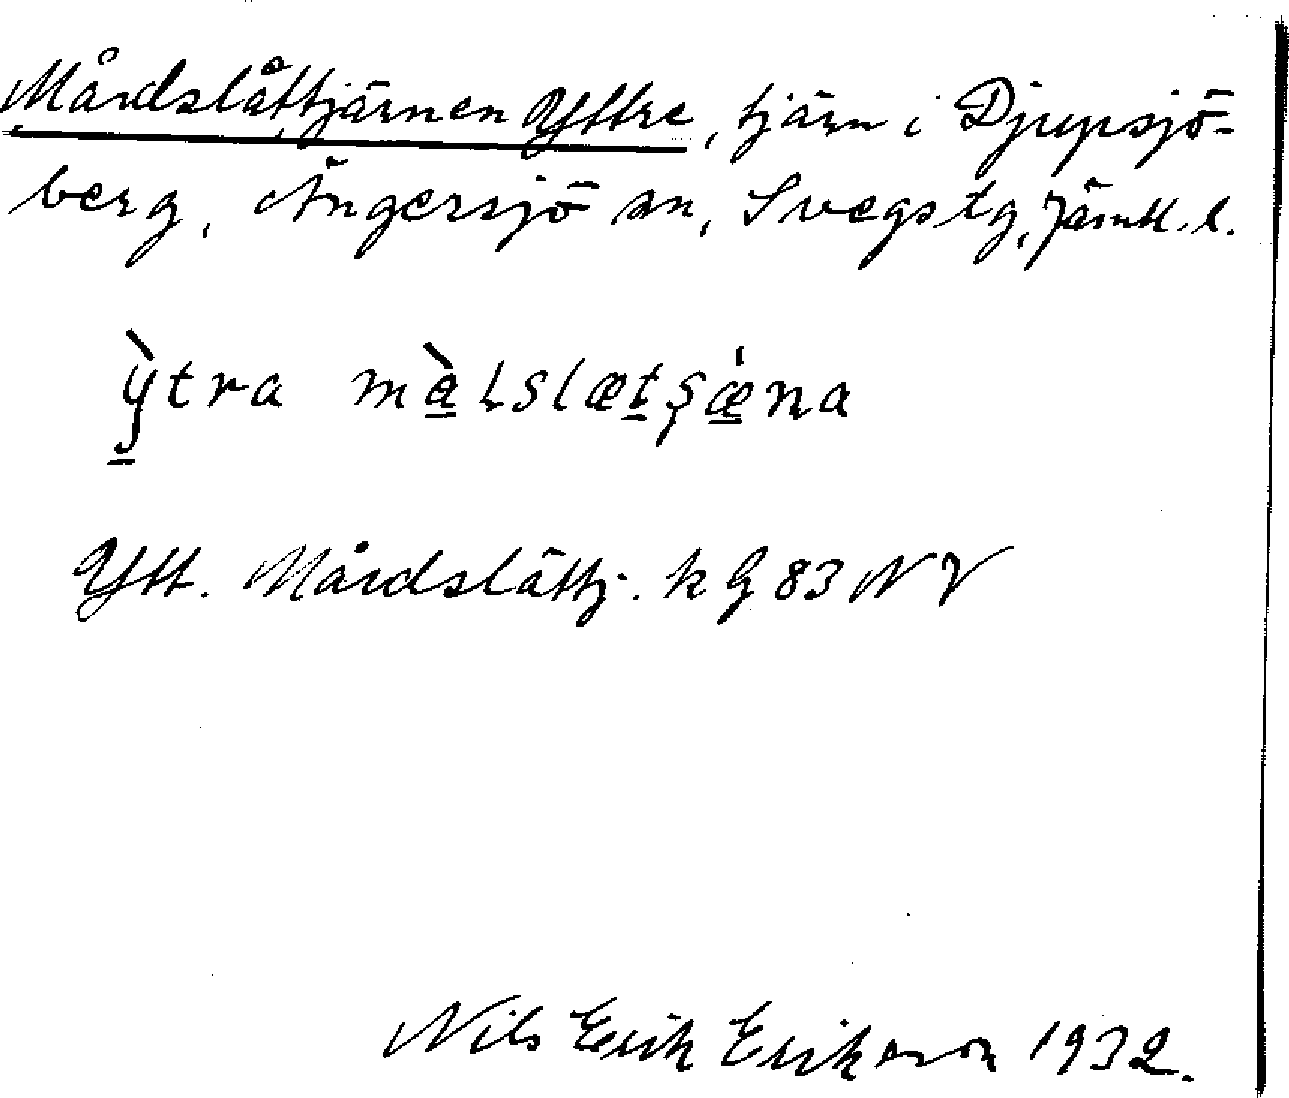 Mårdslåttjärnen Yttre, tjärn i Djupsjö-
berg, Ängersjö sn, Svegs tg, Jämtl. l.
ỳtra màḷslætʂǽṇa
Ytt. Mårdslåttj. k G 83 NV
Nils Erik Erikson 1932.